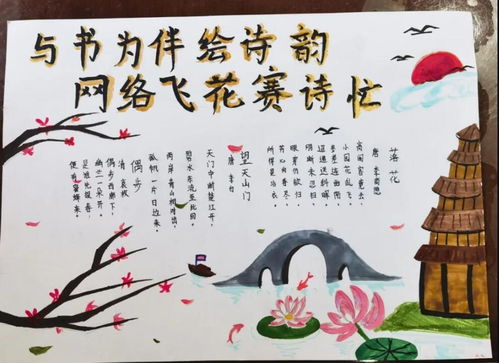 与书为伴绘诗韵
网络飞花赛诗忙
落花
唐 李商隐
高阁客竟去,
小园花乱飞。
参差连曲陌,
迢递送斜晖。
肠断未忍扫,
眼穿仍欲归。
芳心向春尽,
所得是沾衣。
望天山门
唐 李白
天门中断楚江开,
碧水东流至此回。
两岸青山相对出,
孤帆一片日边来。
偶步
清 袁枚
偶步西廊下,
幽兰一朵开。
便有蜜蜂来。